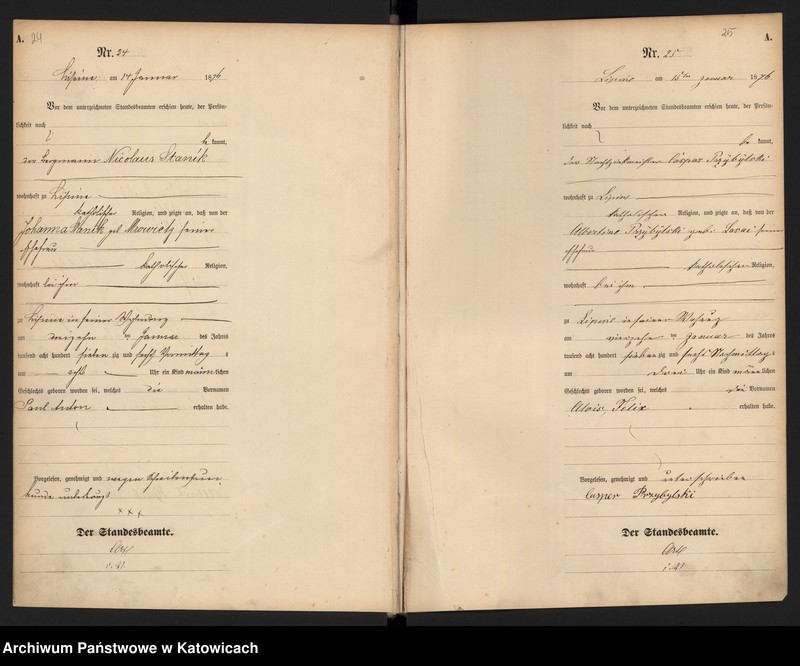 A. 24
Nr. 24
Lipine am 14 Januar 1876
Vor dem unterzeichneten Standesbeamten erschien heute, der Persön-
lichkeit nach
be kannt,
der Bergmann Nicolaus Stanik
wohnhaft zu Lipine
katholischer Religion, und zeigte an, daß von der
Johanna Stanik geb. Mrowietz seiner
Ehefrau
katholischer Religion,
wohnhaft bei ihm
zu Lipine in seiner Wohnung
am dreizehn ten Januar des Jahres
tausend acht hundert sieben zig und sechs Vormittag s
um acht Uhr ein Kind männ lichen
Geschlechts geboren worden sei, welches die Vornamen
Paul Anton erhalten habe.
Vorgelesen, genehmigt und wegen Schreibensun
kunde unterkreuzt
x x x
Der Standesbeamte.
25 A.
Nr. 25
Lipine am 15ten Januar 1876
Vor dem unterzeichneten Standesbeamten erschien heute, der Persön-
lichkeit nach
be kannt,
der Caspar Przybylski
wohnhaft zu Lipine
katholischer Religion, und zeigte an, daß von der
Albertine Przybylski geb. seiner
Ehefrau
katholischer Religion,
wohnhaft bei ihm
zu Lipine in seiner Wohnung
am vierzehn ten Januar des Jahres
tausend acht hundert sieben zig und sechs Nachmittags
um drei Uhr ein Kind männ lichen
Geschlechts geboren worden sei, welches die Vornamen
Alois, Felix erhalten habe.
Vorgelesen, genehmigt und unterschrieben
Casper Przybylski
Der Standesbeamte.
Archiwum Państwowe w Katowicach